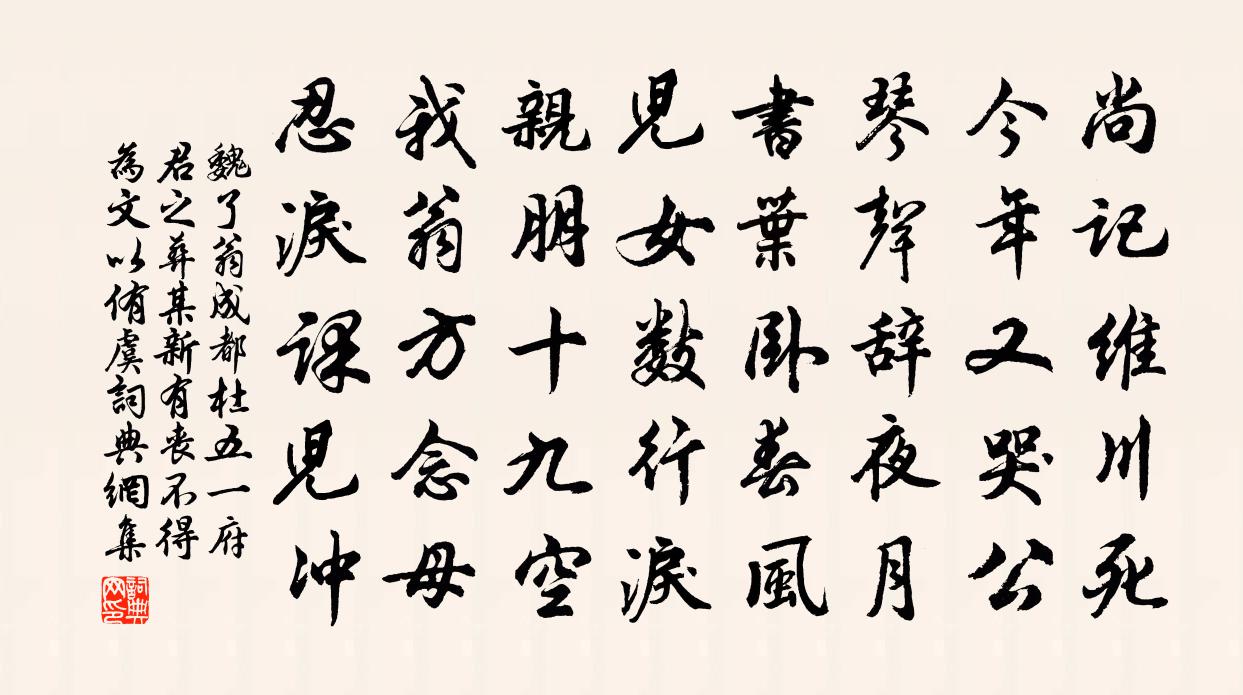 尚记维川死
今年又哭公
琴声辞夜月
書葉卧春風
児女数行淚
親朋十九空
我翁方念母
忍淚課児冲
魏了翁成都杜五一府
君之葬某新有丧不得
為文以侑虞詞典網集
詞典网印